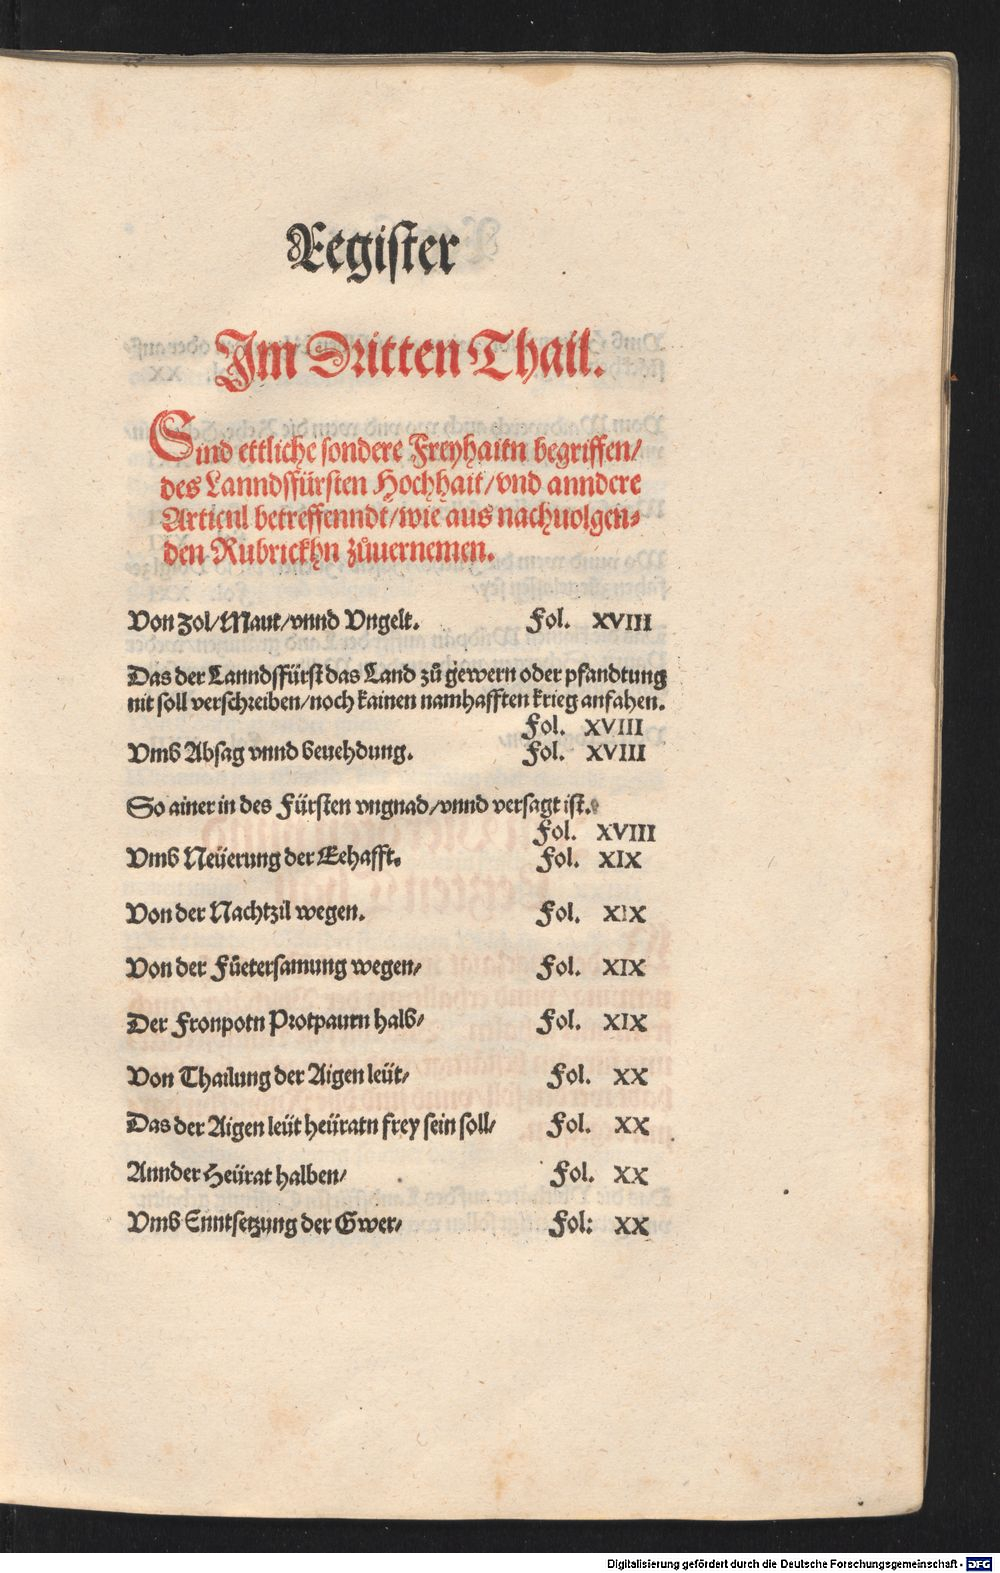 Register
Im Dritten Thail.
Sind ettliche sondere Freyhaitn begriffen/
des Lanndsfürsten Hochhait/vnd anndere
Articul betreffenndt/wie aus nachuolgen-
den Rubrickhn zůuernemen.
Von Zol/Maut/vnnd Vngelt. Fol. XVIII
Das der Lanndsfürst das Land zů gewern oder pfandtung
nit soll verschreiben/noch kainen namhafften krieg anfahen.
Fol. XVIII
Vmb Absag vnnd beuehdung. Fol. XVIII
So ainer in des Fürsten vngnad/vnnd versagt ist.
Fol. XVIII
Vmb Neüerung der Eehafft. Fol. XIX
Von der Nachtzil wegen. Fol. XIX
Von der Füetersamung wegen/ Fol. XIX
Der Fronpotn Protpaurn halb/ Fol. XIX
Von Thailung der Aigen leüt/ Fol. XX
Das der Aigen leüt heüratn frey sein soll/ Fol. XX
Annder Heürat halben/ Fol. XX
Vmb Enntsetzung der Gwer/ Fol: XX
Digitalisierung gefördert durch die Deutsche Forschungsgemeinschaft - DFG